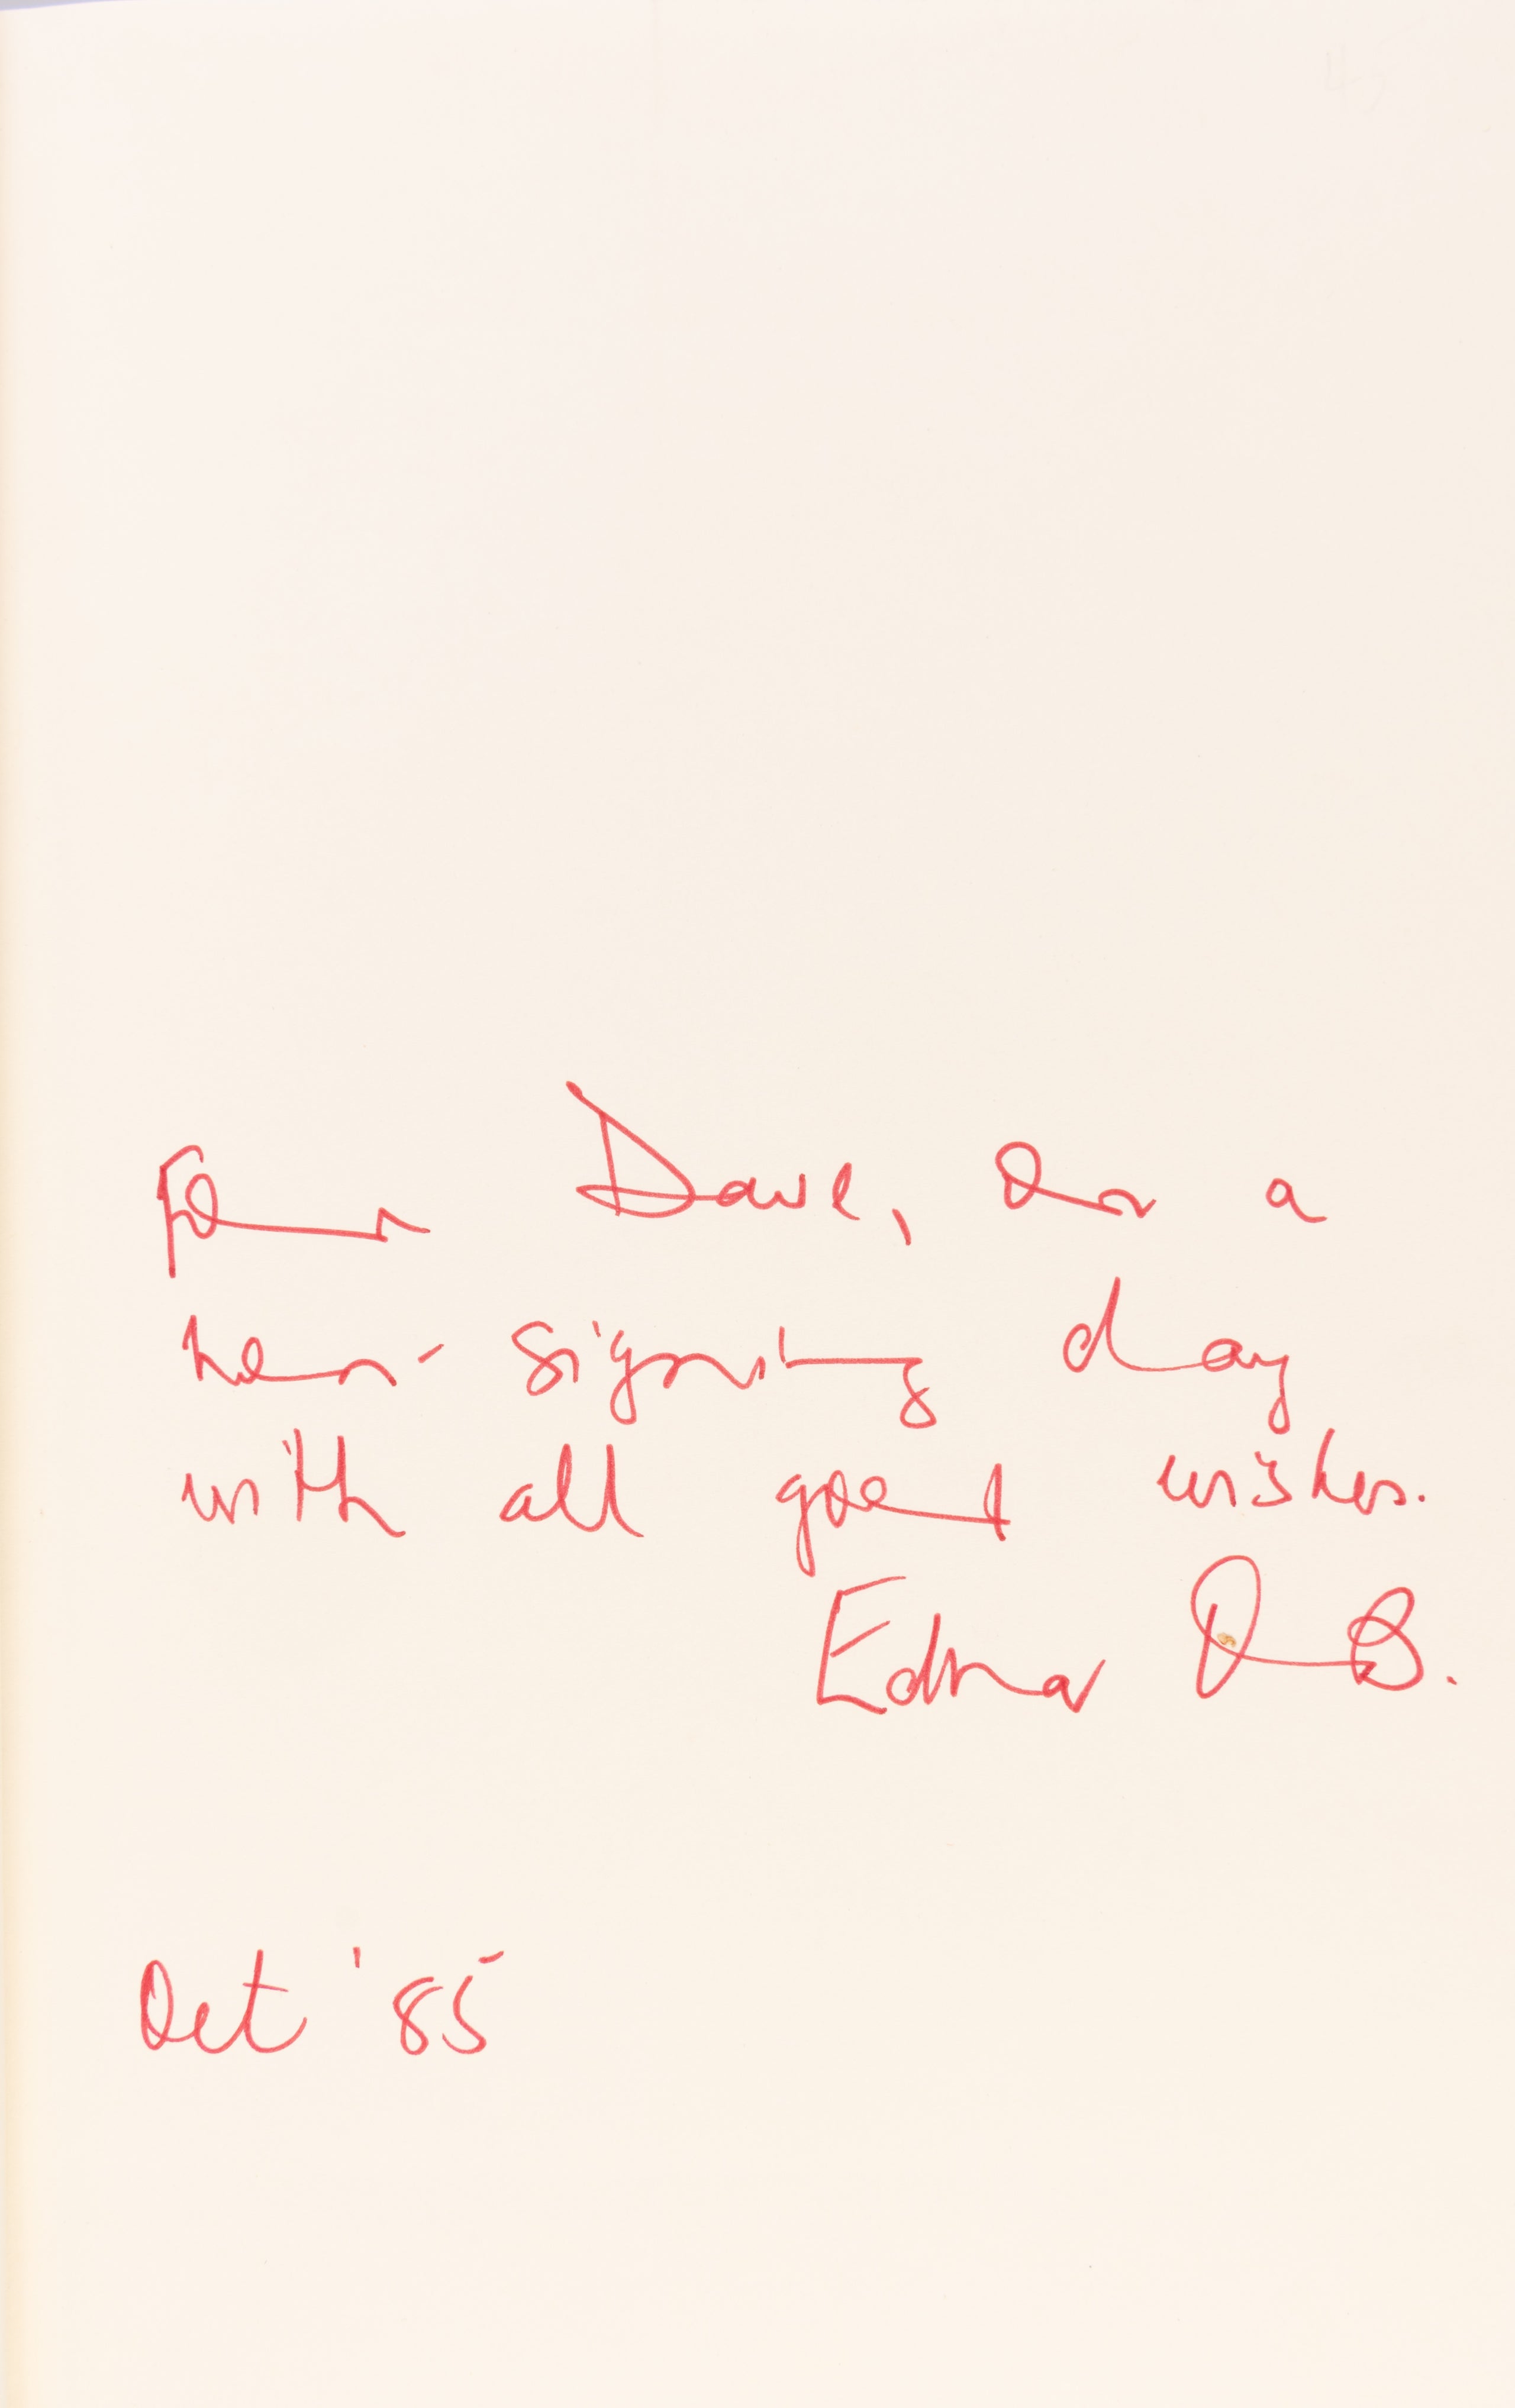 For Dave, On a
non-signing day
with all good wishes.
Edna O'B.
Oct '85